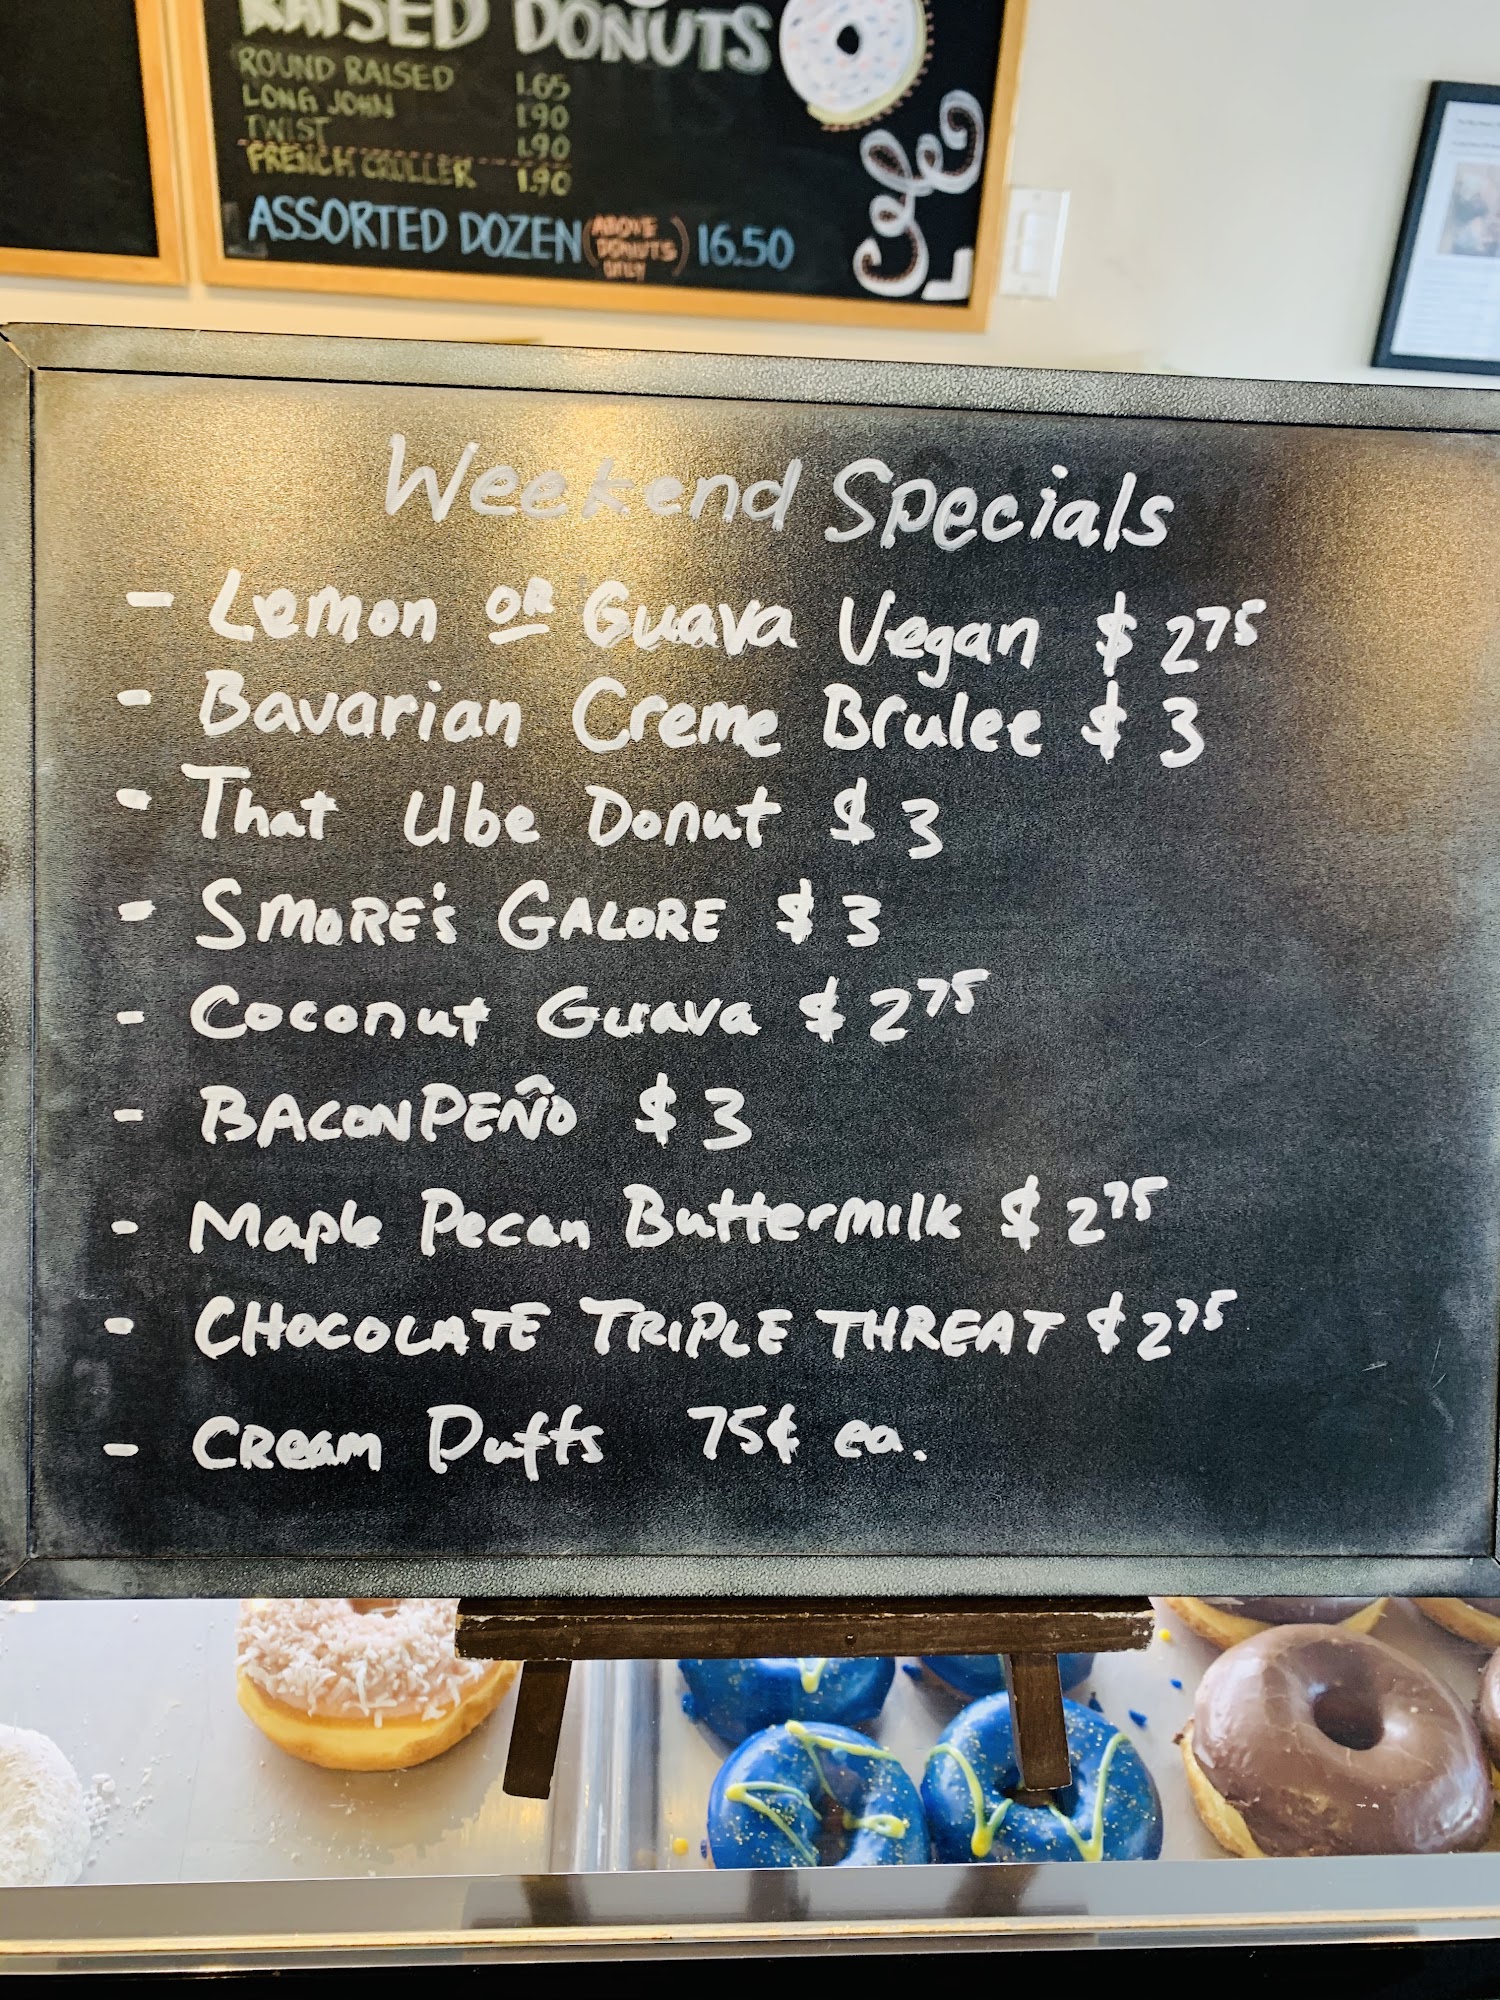 RAISED DONUTS
ROUND RAISED 1.65
LONG JOHN 1.90
TWIST 1.90
FRENCH CRULLER 1.90
ASSORTED DOZEN (ABOVE DONUTS ONLY) 16.50
Weekend Specials
- Lemon OR Guava Vegan $2 75
- Bavarian Creme Brulee $3
- That Ube Donut $3
- SMORE'S GALORE $3
- Coconut Guava $2 75
- BACONPEÑO $3
- Maple Pecan Buttermilk $2 75
- CHOCOLATE TRIPLE THREAT $2 75
- CREAM Puffs 75¢ ea.